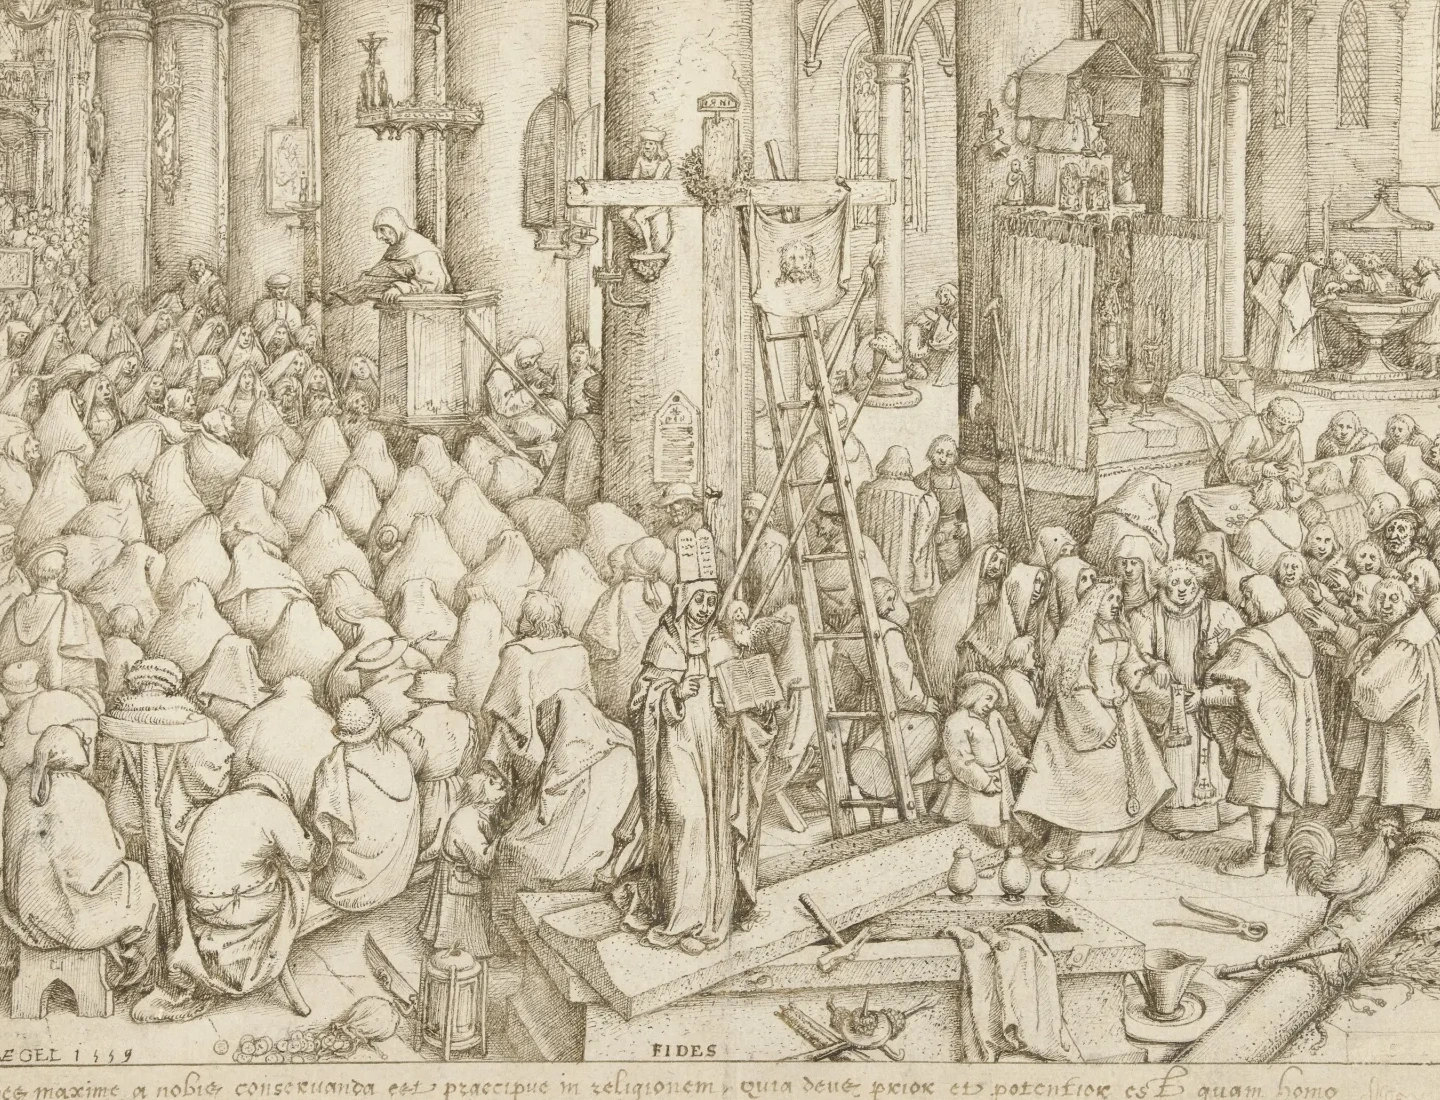 INRI
ÆGEL 1559
FIDES
maxime a nobis conseruanda est praecipue in religionem, quia deus prior et potentior est quam homo